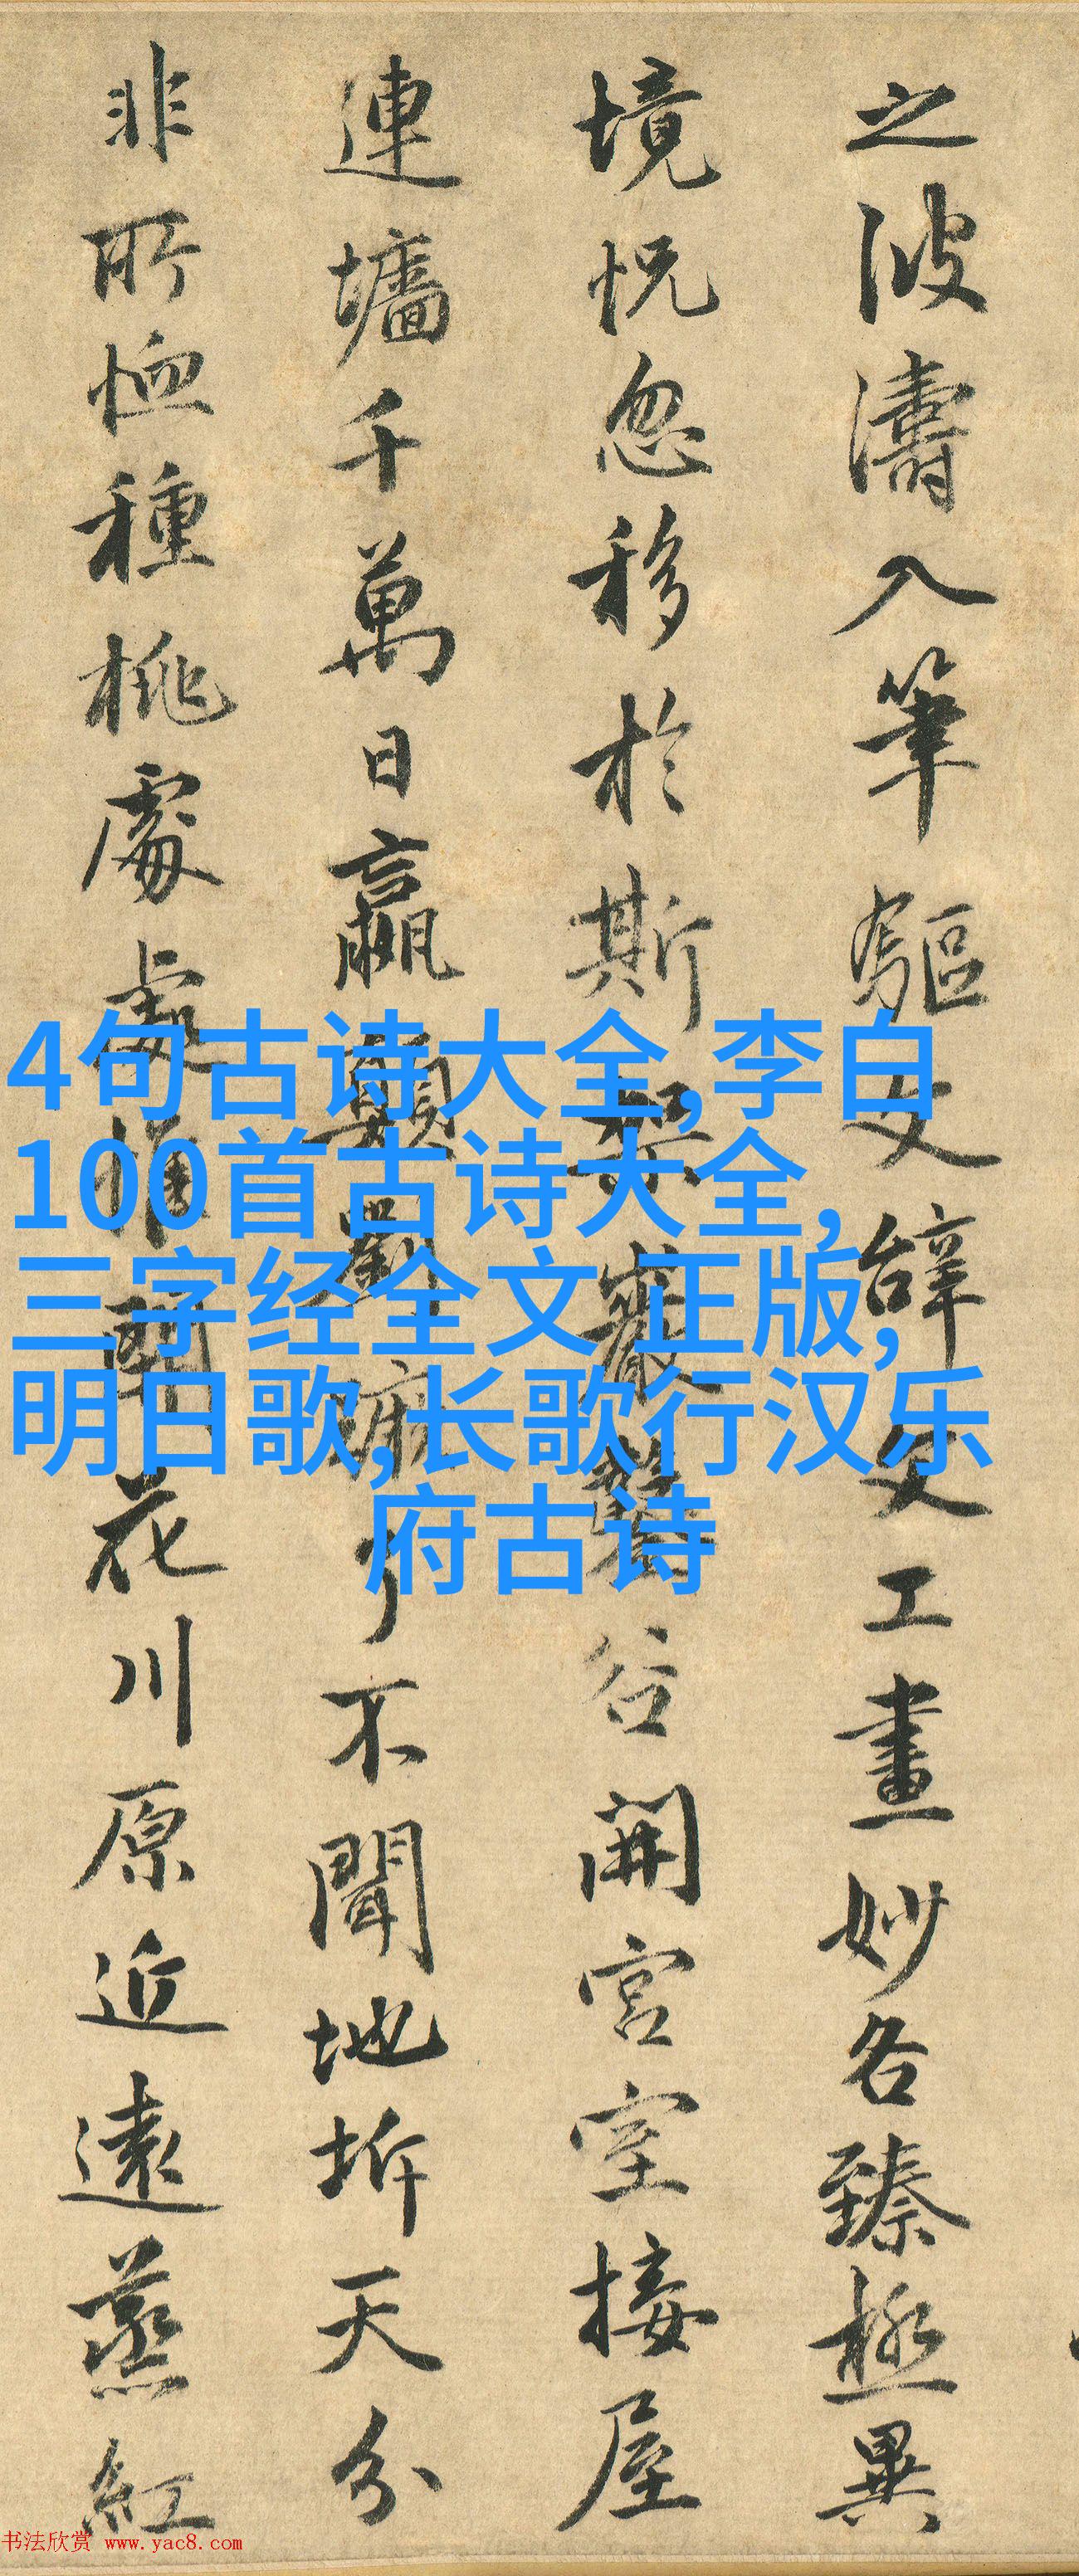 之波濤入筆驅文辭文工畫妙各臻極異
境恍忽移於斯架巖鑿谷開宮室接屋
連墻千萬日嬴顛劉蹶了不聞地坼天分
非所恤種桃處處惟開花川原近遠蒸紅
4句古诗大全,李白
100首古诗大全,
三字经全文 正版,
明日歌,长歌行汉乐
府古诗
书法欣赏 www.yac8.com